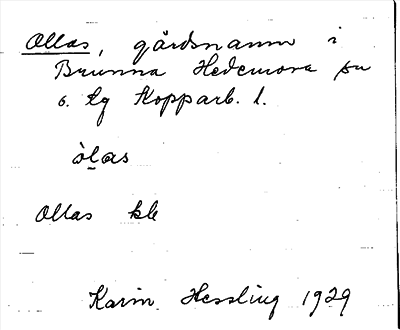 Ollas, gårdsnamn i
Brunna Hedemora sn
o. lg Kopparb. l.
òlas
Ollas kb
Karin Hessling 1929